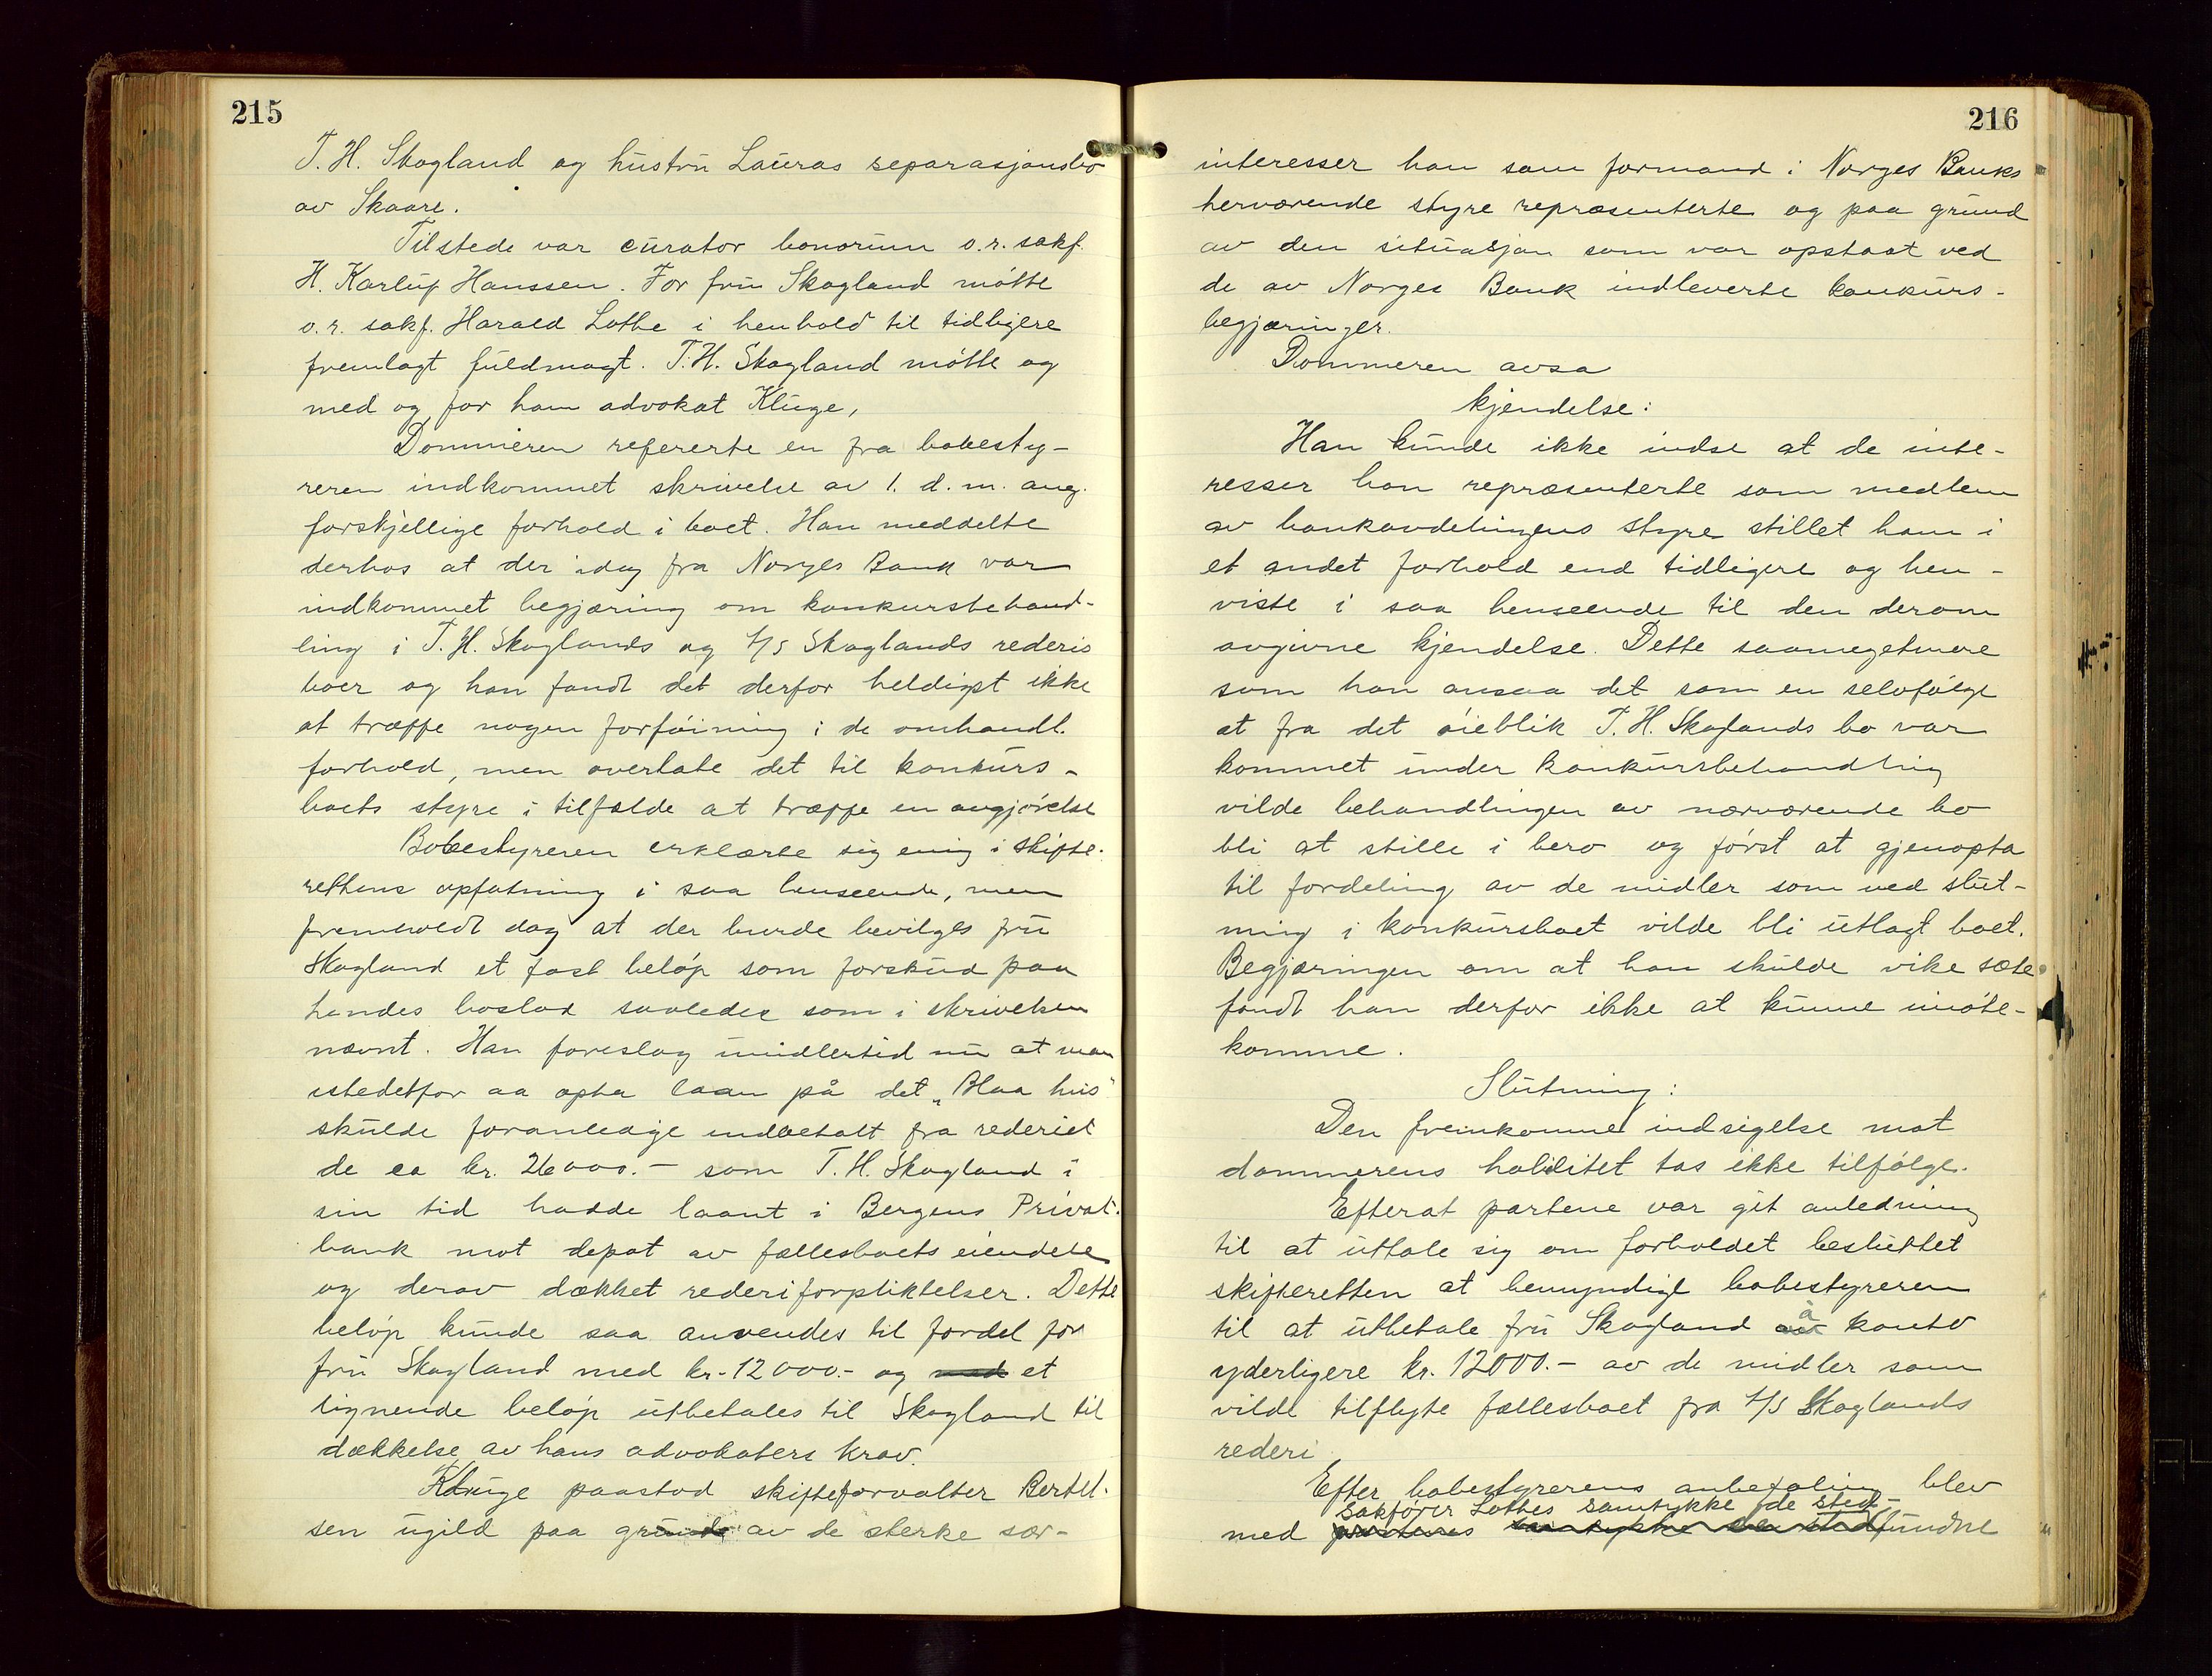 215
T. H. Skogland og hustru Lauras separasjonsbo
av Skaare.
Tilstede var curator bonorum o.r. sakf.
H. Karlup Hanssen. For fru Skogland møtte
o.r. sakf. Harald Lothe i henhold til tidligere
fremlagt fuldmagt. T.H. Skogland møtte og
med og for ham advokat Kluge,
Dommeren refererte en fra bobesty-
reren indkommet skrivelse av 1. d.m. ang.
forskjellige forhold i boet. Han meddelte
derhos at der idag fra Norges Bank var
indkommet begjæring om konkursbehand-
ling i T. H. Skoglands og A/S Skoglands rederis
boer og han fandt det derfor heldigst ikke
at træffe nogen forføining i de omhandl.
forhold, men overlate det til konkurs-
boets styre i tilfælde at træffe en avgjørelse
Bobestyreren erklærte sig enig i skifte-
rettens opfatning i saa henseende, men
fremholdt dog at der burde bevilges fru
Skogland et fast beløp som forskud paa
hendes boslod saaledes som i skrivelsen
nævnt. Han foreslog imidlertid nu at man
istedetfor aa opta laan på det „Blaa hus"
skulde foranledige indbetalt fra rederiet
de ca kr. 26000.- som T. H. Skogland i
sin tid hadde laant i Bergens Privat-
bank mot depot av fællesboets eiendele
og derav dækket rederiforpliktelser. Dette
beløp kunde saa anvendes til fordel for
fru Skogland med kr. 12000.- og med et
lignende beløp utbetales til Skogland til
dækkelse av hans advokaters krav.
Kluge paastod skifteforvalter Bertel-
sen ugild paa grund av de sterke sær-
216
interesser han som formand i Norges Banks
herværende styre repræsenterte og paa grund
av den situasjon som var opstaat ved
de av Norges Bank indleverte konkurs-
begjæringer.
Dommeren avsa
kjendelse:
Han kunde ikke indse at de inte-
resser han repræsenterte som medlem
av bankavdelingens styre stillet ham i
et andet forhold end tidligere og hen-
viste i saa henseende til den derom
avgivne kjendelse. Dette saameget mere
som han ansaa det som en selvfølge
at fra det øieblik T. H. Skoglands bo var
kommet under konkursbehandling
vilde behandlingen av nærværende bo
bli at stille i bero og først at gjenopta
til fordeling av de midler som ved slut-
ning i konkursboet vilde bli utlagt boet.
Begjæringen om at han skulde vike sæte
fandt han derfor ikke at kunne imøte-
komme.
Slutning:
Den fremkomne indsigelse mot
dommerens habilitet tas ikke tilfølge.
Efterat partene var git anledning
til at uttale sig om forholdet besluttet
skifteretten at bemyndige bobestyreren
til at utbetale fru Skogland à konto
yderligere kr. 12000.- av de midler som
vilde tilflyte fællesboet fra A/S Skoglands
rederi
Efter bobestyrerens anbefaling blev
sakfører Lothes samtykke de sted-
med partenes samtykke fundne